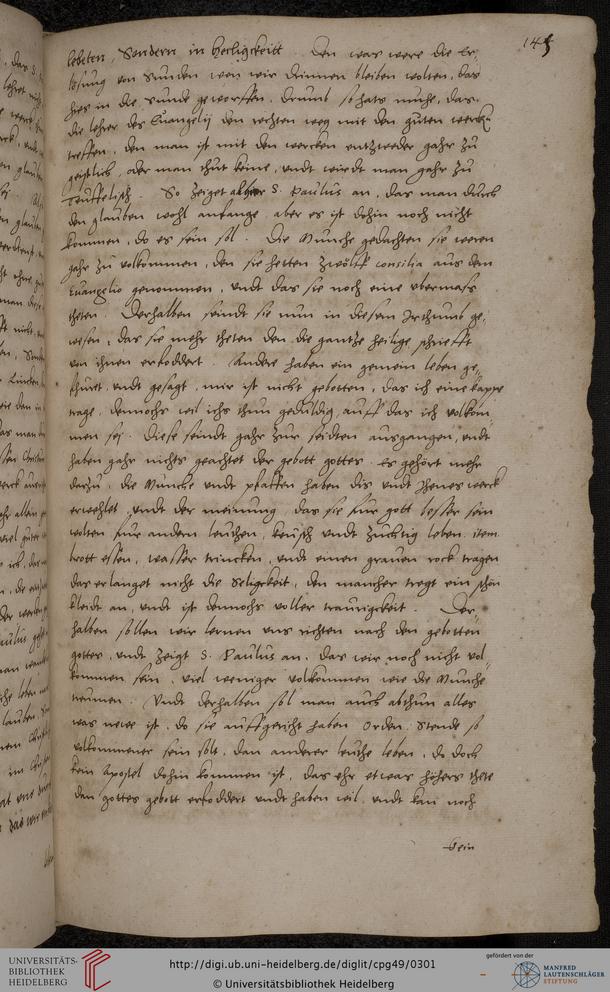 145
lebeten, Sondern in heiligkeitt. Den was were die Er-
lösung von Sunden wen wir drinnen bleiben wolten, das
hies in die sunde geworffen. Drumb so hats muhe, das
die lehrer des Euangelij den rechten weg mit den guten werck
treffen, den man ist mit den wercken entzweder gahr zu
geistlich, oder man thut keine, undt wirdt man gahr zu
Teuffelisch. So zeiget alhier S. Paulus an, das man durch
den glauben wohl anfange, aber es ist dohin noch nicht
kommen, do es sein sol. Die Munche gedachten sie weren
gahr zu volkommen, den sie hetten zwölff consilia aus dem
Euangelio genommen, undt das sie noch eine ubermass
theten. Derhalben seindt sie nun in diesem Irthumb ge-
wesen, das sie mehr theten den die gantze heilige schriefft
von ihnen erfoddert. Andere haben ein gemein leben ge-
fhuret, undt gesagt, mir ist nicht gebotten, das ich eine kappe
trage, dennochs wil ichs thun geduldig, auff das ich volkom-
men sej. Diese seindt gahr zur seidten ausgangen, undt
haben gahr nichts geachtet der gebott gottes. Es gehört mehr
darzu, die Munche undt pfaffen haben dis undt Jhenes werck
erwehlet, undt der meinung das sie fur gott besser sein
wolten fur andern leuthen, keusch undt zuchtig leben, item
brott essen, wasser trincken, undt einen grauen rock tragen
das erlanget nicht die Seligkeit, den mancher tregt ein schön
kleidt an, undt ist dennochs voller traurigkeit. Der-
halben sollen wir lernen uns richten nach den gebotten
gottes, undt zeigt S. Paulus an, das wir noch nicht vol-
kommen sein, viel weniger volkommen wie die Munche
reumen. Undt derhalben sol man auch abthun alles
was newe ist, do sie auffgericht haben Orden, Stende so
volkommener sein solt, dan anderer leuthe leben, do doch
kein Apostel dohin kommen ist, das ehr etwas höhers thete
dan gottes gebott erfoddert undt haben wil, undt kan noch
kein
UNIVERSITÄTS-
BIBLIOTHEK
HEIDELBERG
http://digi.ub.uni-heidelberg.de/diglit/cpg49/0301
© Universitätsbibliothek Heidelberg
gefördert von der
MANFRED
LAUTENSCHLÄGER
STIFTUNG